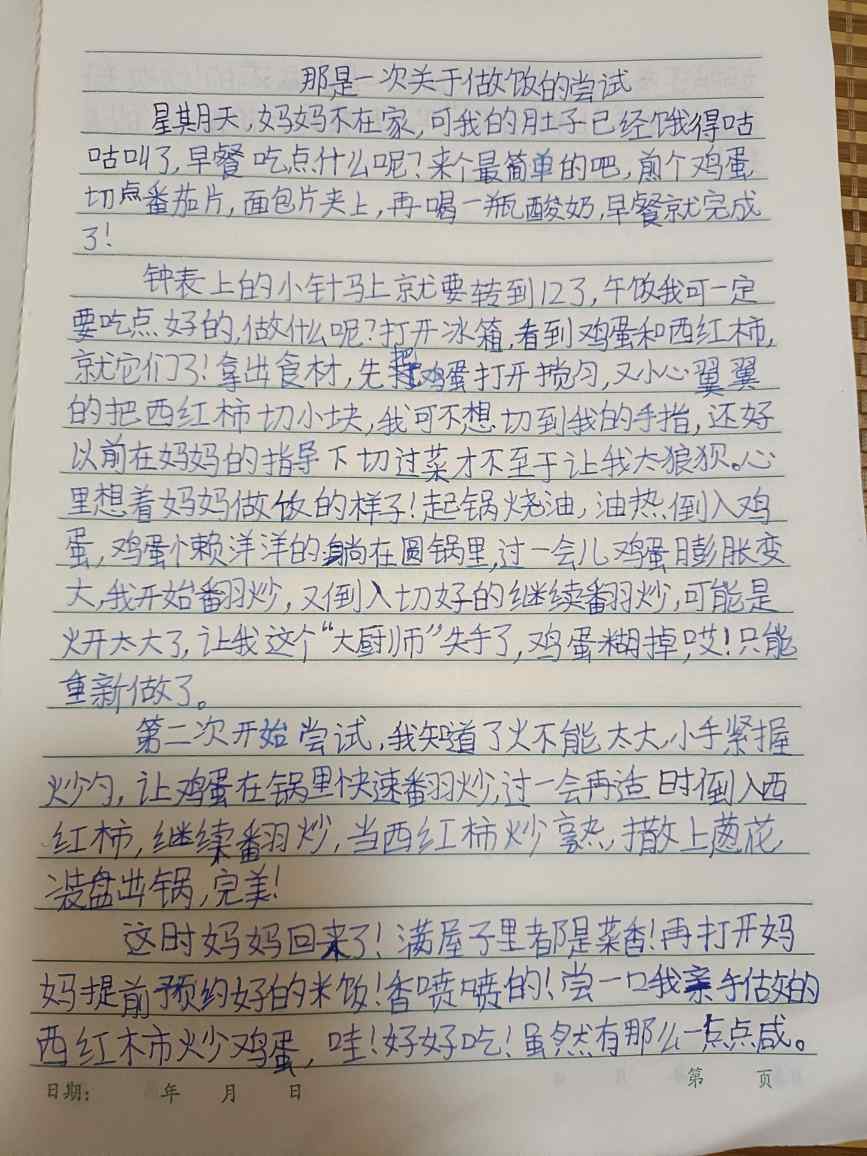 那是一次关于做饭的尝试
星期天,妈妈不在家,可我的肚子已经饿得咕
咕叫了,早餐吃点什么呢?来个最简单的吧,煎个鸡蛋
切点番茄片,面包片夹上,再喝一瓶酸奶,早餐就完成
了!
钟表上的小针马上就要转到12了,午饭我可一定
要吃点好的,做什么呢?打开冰箱,看到鸡蛋和西红柿,
就它们了!拿出食材,先把鸡蛋打开搅匀,又小心翼翼
的把西红柿切小块,我可不想切到我的手指,还好
以前在妈妈的指导下切过菜才不至于让我太狼狈。心
里想着妈妈做饭的样子!起锅烧油,油热倒入鸡
蛋,鸡蛋懒洋洋的躺在圆锅里,过一会儿鸡蛋膨胀变
大,我开始翻炒,又倒入切好的继续翻炒,可能是
火开太大了,让我这个“大厨师”失手了,鸡蛋糊掉,哎!只能
重新做了。
第二次开始尝试,我知道了火不能太大,小手紧握
炒勺,让鸡蛋在锅里快速翻炒,过一会再适时倒入西
红柿,继续翻炒,当西红柿炒熟,撒上葱花,
装盘出锅,完美!
这时妈妈回来了!满屋子里都是菜香!再打开妈
妈提前预约好的米饭!香喷喷的!尝一口我亲手做的
西红柿炒鸡蛋,哇!好好吃!虽然有那么一点点咸。
日期: 年 月 日 第 页